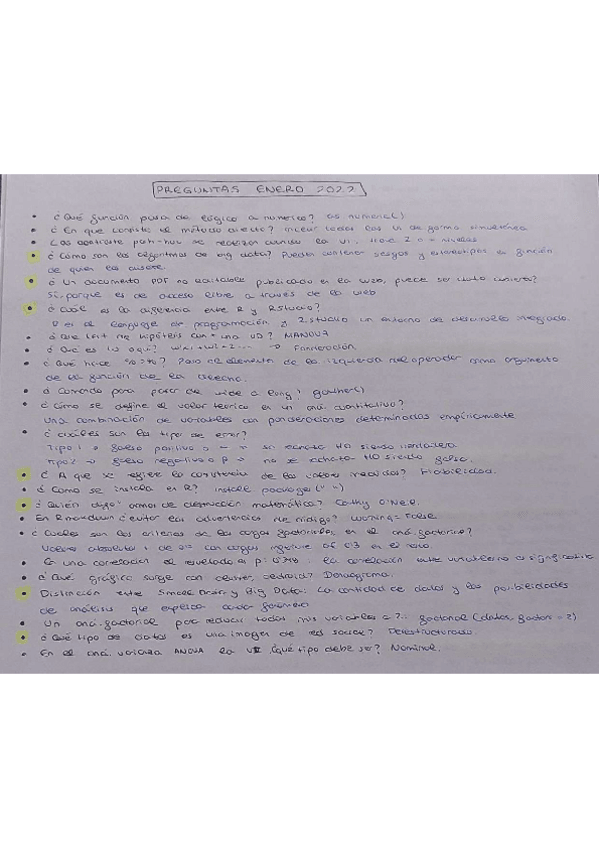 PREGUNTAS ENERO 2022
• ¿Qué función pasa de lógico a numérico? as numeric()
• ¿En que consiste el método directo? Incluir todas las VI de forma simultánea
• Los contrastes post-hoc se realizan cuando la VI: niveles
• ¿Cómo son los algoritmos de big data? Pueden contener sesgos y estereotipos en función
de quien los diseñe.
• ¿Un documento PDF no editable publicado en la web, puede ser dato abierto?
Sí, porque es de acceso libre a través de la web
• ¿Cuál es la diferencia entre R y RStudio?
R es el lenguaje de programación, y RStudio un entorno de desarrollo integrado.
• ¿Que test de hipótesis con + de una VD? MANOVA
• ¿Qué es lo aquí? Formulación
• ¿Qué hace %>%? Pasa el elemento de la izquierda del operador como argumento
de la función de la derecha.
• ¿Comando para pasar de wide a long? gather()
• ¿Cómo se define el valor teórico en un aná. cuantitativo?
Una combinación de variables con ponderaciones determinadas empíricamente
• ¿Cuáles son los tipos de error?
Tipo 1 → falso positivo α → se rechaza H0 siendo verdadera
Tipo 2 → falso negativo β → no se rechaza H0 siendo falsa.
• ¿A que se refiere la consistencia de los valores medidos? Fiabilidad.
• ¿Como se instala en R? install packages(" ")
• ¿Quién dijo "armas de destrucción matemática"? Cathy O'Neil.
• En Rmarkdown ¿evitar las advertencias del código? Warning = False
• ¿Cuáles son los criterios de las cargas factoriales en el aná. factorial?
Valores absolutos
• En una correlación el resultado es p: 0'78: la correlación entre
• ¿Qué gráfico surge con cluster, Dendograma.
• Distinción entre Small Data y Big Data: La cantidad de datos y las posibilidades
de análisis que
• Un aná. factorial para reducir todas mis variables a 2: factanal (datos, factor = 2)
• ¿Qué tipo de datos es una imagen de red social? Desestructurados
• En el aná. ANOVA la VI ¿qué tipo debe ser? Nominal.